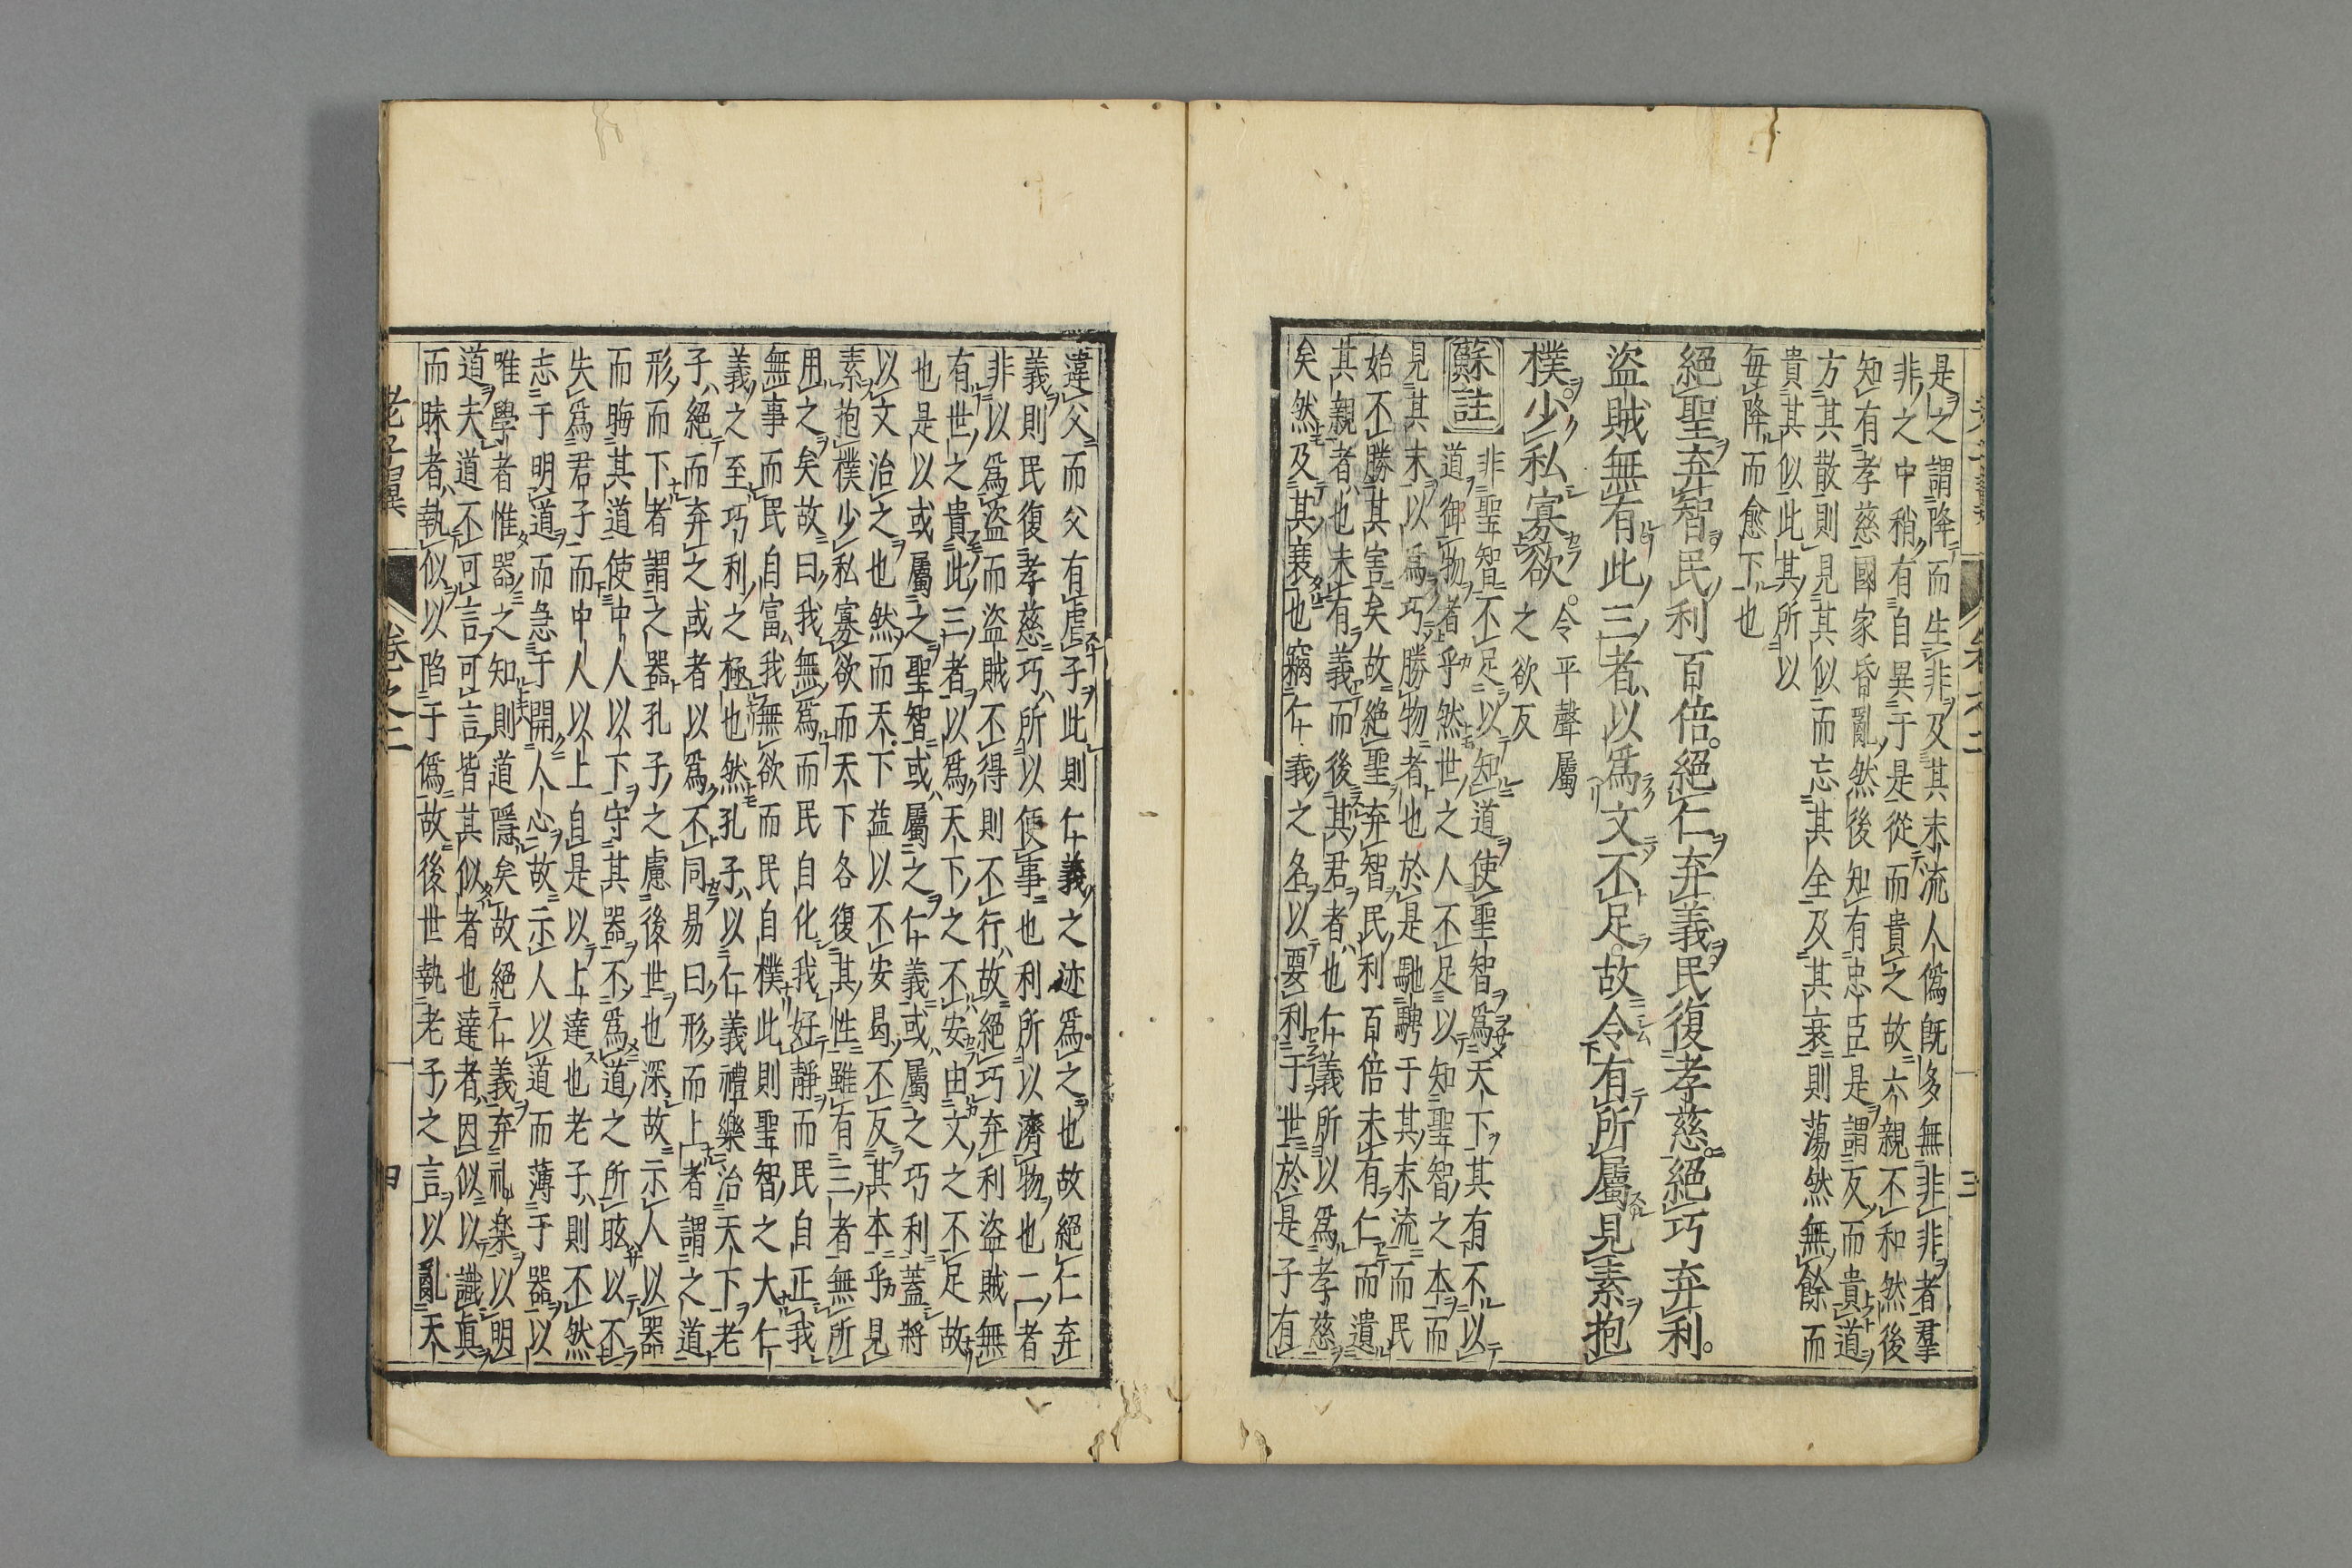 是之謂降而生非及其末流人偽既多無非非者羣
非之中稍有自異于是從而貴之故六親不和然後
知有孝慈國家昏亂然後知有忠臣是謂反而貴道
方其散則見其似而忘其全及其衰則蕩然無餘而
貴其似此其所以
每降而愈下也
絕聖弃智民利百倍。絕仁弃義民復孝慈。絕巧弃利。
盜賊無有此三者以爲文不足。故令有所屬見素抱
樸。少私寡欲。
令平聲屬
之欲反
蘇註
非聖智不足以知道使聖智爲天下其有不以
道御物者乎然世之人不足以知聖智之本而
見其末以爲巧勝物者也於是馳騁于其末流而民
始不勝其害矣故絕聖弃智民利百倍未有仁而遺
其親者也未有義而後其君者也仁義所以爲孝慈
矣然及其衰也竊仁義之名以要利于世於是子有
違父而父有虐子此則仁義之迹爲之也故絕仁弃
義則民復孝慈巧所以便事也利所以濟物也二者
非以爲盜而盜賊不得則不行故絕巧弃利盜賊無
有世之貴此三者以爲天下之不安由文之不足故
也是以或屬之聖智或屬之仁義或屬之巧利蓋將
以文治之也然而天下益以不安曷不反其本乎見
素抱樸少私寡欲而天下各復其性雖有三者無所
用之矣故曰我無爲而民自化我好靜而民自正我
無事而民自富我無欲而民自樸此則聖智之大仁
義之至巧利之極也然孔子以仁義禮樂治天下老
子絕而弃之或者以爲不同易曰形而上者謂之道
形而下者謂之器孔子之慮後世也深故示人以器
而晦其道使中人以下守其器不爲道之所眩以不
失爲君子而中人以上自是以上達也老子則不然
志于明道而急于開人心故示人以道而薄于器以
唯學者惟器之知則道隱矣故絕仁義弃礼楽以明
道夫道不可言可言皆其似者也達者因似以識真
而昧者執似以陷于偽故後世執老子之言以亂天
老子翼 卷之二